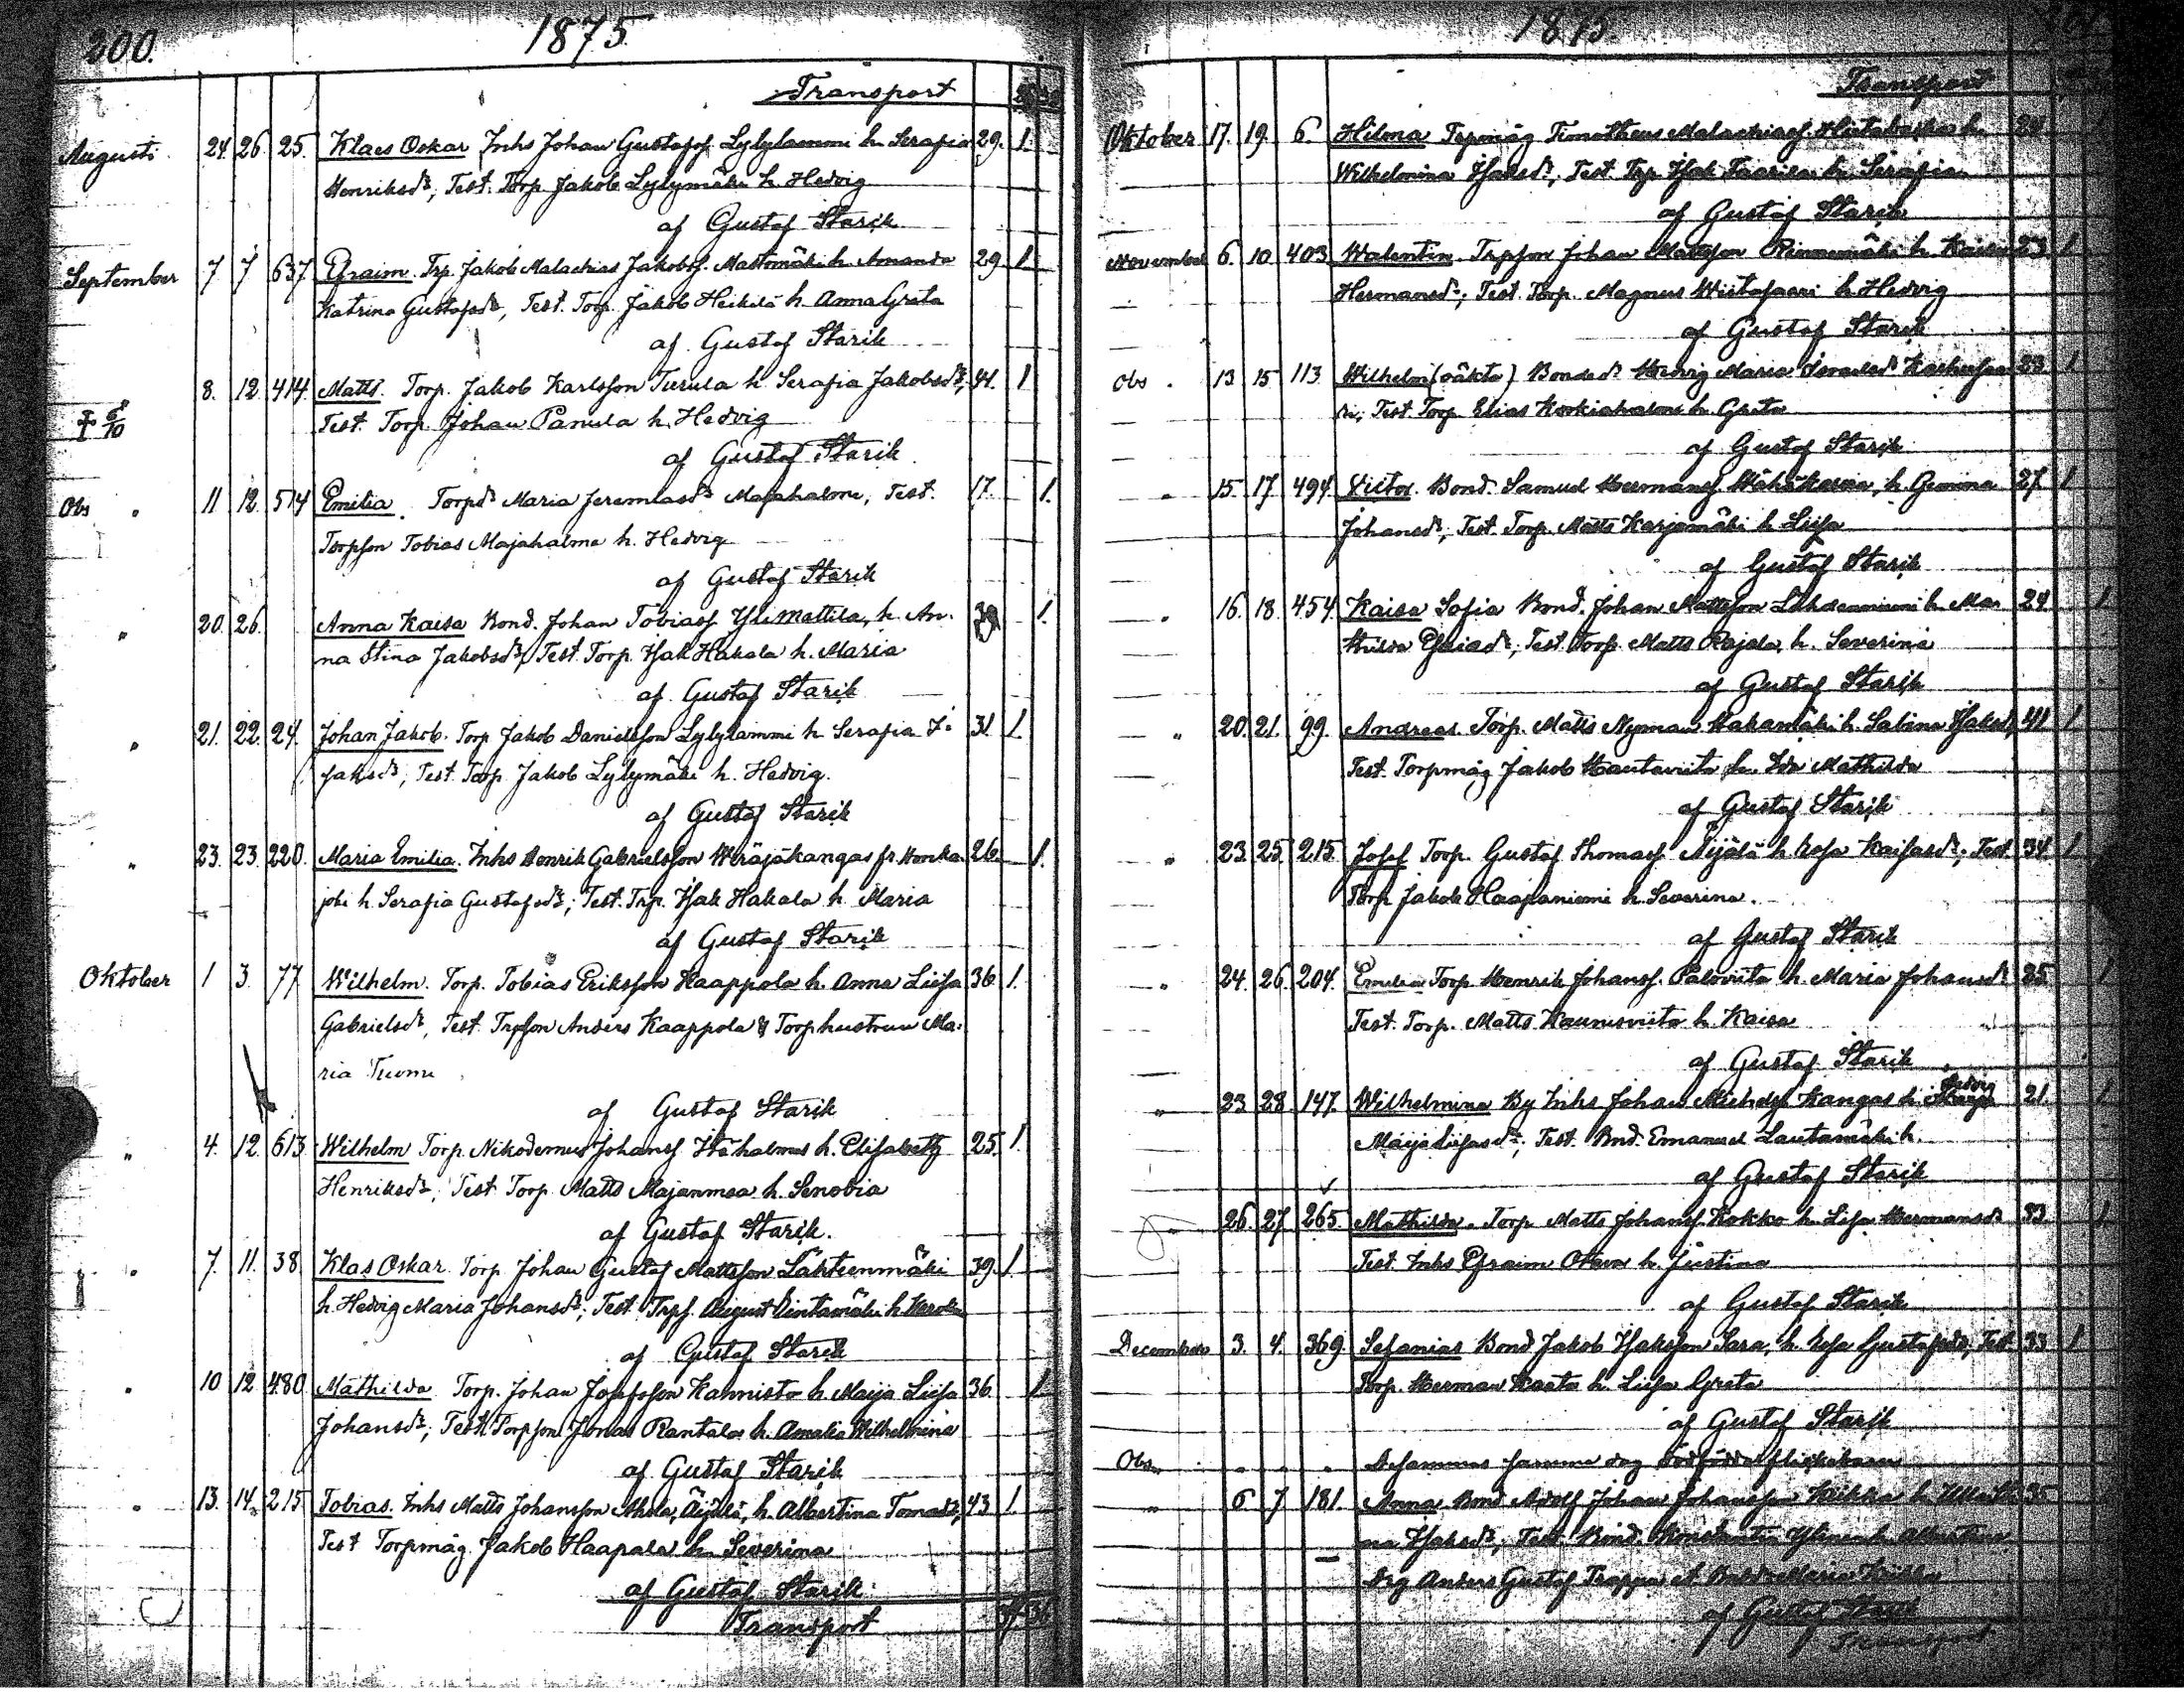 200.
1875
Transport
Augusti 24. 26. 25. Klaes Oskar Inhs Johan Gustafsf. Lylylammi h. Serafia 29. 1.
Henriksdr, Test. Torp. Jakob Lylymäki h. Hedvig
af Gustaf Starik
September 7 7 637 Efraim. Trp. Jakob Malachias Jakobsf. Mattomäki h. Amanda 29 1.
Katrina Gustafsdr, Test. Torp. Jakob Heikilä h. Anna Greta
af Gustaf Starik
" 8. 12. 414. Matts. Torp. Jakob Karlsson Turula h. Serafia Jakobsdr, 41. 1
† 6/10
Test. Torp. Johan Panula h. Hedvig
af Gustaf Starik
Obs " 11 12 514 Emilia. Torpdr Maria Jeremiasdr Majahalme, Test. 17. 1.
Torpson Tobias Majahalme h. Hedvig
af Gustaf Starik
" 20. 26. Anna Kaisa Bond. Johan Tobiasf. Yli Mattila, h. An- 1.
na Stina Jakobsdr, Test. Torp. Isak Hakala h. Maria
af Gustaf Starik
" 21. 22. 24. Johan Jakob. Torp. Jakob Danielsson Lylylammi h. Serafia I- 31. 1.
saksdr, Test. Torp. Jakob Lylymäki h. Hedvig.
af Gustaf Starik
" 23. 23. 220. Maria Emilia. Inhs Henrik Gabrielsson Weräjäkangas fr. Honka- 26. 1.
joki h. Serafia Gustafsdr; Test. Trp. Isak Hakala h. Maria
af Gustaf Starik
Oktober 1 3. 77 Wilhelm. Torp. Tobias Eriksson Kaappola h. Anna Liisa 36. 1.
Gabrielsdr, Test. Trpson Anders Kaappola & Torphustrun Ma-
ria Tuomi
af Gustaf Starik
" 4. 12. 613. Wilhelm Torp. Nikodemus Johansf. Itähalmes h. Elisabeth 25. 1.
Henriksdr, Test. Torp. Matts Majanmaa h. Senobia
af Gustaf Starik.
" 7. 11. 38 Klas Oskar. Torp. Johan Gustaf Mattsson Lähteenmäki 39. 1.
h. Hedvig Maria Johansdr; Test. Trpf. August h.
af Gustaf Starik
" 10 12. 480 Mathilda. Torp. Johan Josefsson Kannisto h. Maija Liisa 36. 1
Johansdr, Test. Torpson Jonas Rantala h. Amalia Wilhelmina
af Gustaf Starik
" 13. 14. 215. Tobias. Inhs Matts Johansson Ahola, Äijälä, h. Albertina Tomasdr, 43 1.
Test Torpmåg Jakob Haapala h. Severina
af Gustaf Starik
Transport
1875.
Transport
Oktober 17. 19. 6. Hilma Trpmåg Timotheus Malachiasf. h. 24
Wilhelmina Isaksdr, Test. Trp. Isak h. Serafia
af Gustaf Starik
November 6. 10. 403 Walentin. Trpson Johan Mattsson Rinnemäki h. Kaisa 23 1
Hermansdr; Test. Torp. Magnus Wiitasaari h. Hedvig
af Gustaf Starik
Obs. 13 15 113 Wilhelm (oäkta) Bondedr Hedvig Maria Israelsdr 23. 1
Test. Torp. Elias Korkiahalme h. Greta
af Gustaf Starik
" 15. 17 494. Victor. Bond. Samuel Hermansf. h. Gemina 27. 1
Johansdr, Test. Torp. Matts Karjamäki h. Liisa
af Gustaf Starik
" 16. 18. 454 Kaisa Sofia Bond. Johan Mattsson h. Ma- 24. 1
thilda Test. Torp. Matts Rajala, h. Severina
af Gustaf Starik
" 20. 21. 99. Andreas. Torp. Matts Nyman Hakamäki h. Sabina Isaksdr, 41 1
Test. Torpmåg Jakob Hautaviita h. Ida Mathilda
af Gustaf Starik
" 23. 25. 215. Josef Torp. Gustaf Thomasf. Äijälä h. Test. 34. 1
Torp. Jakob Haapaniemi h. Severina.
af Gustaf Starik
" 24. 26. 204. Emilia Torp. Henrik Johansf. Paloviita h. Maria Johansdr 35. 1
Test. Torp. Matts Kaunisviita h. Kaisa
af Gustaf Starik
" 23 28 147. Wilhelmina By Inhs Johan Michelsf. Kangas h. Hedvig 21. 1
Test. Bnd. Emanuel Lautamäki h.
af Gustaf Starik
26. 27 265. Mathilda. Torp. Matts Johansf. Kokko h. Lisa Hermansdr 33. 1
Test. Inhs Efraim Otava h. Justina
af Gustaf Starik
December 3. 4. 369. Sefanias Bond. Jakob Isaksson Sara, h. Gustafsdr, Test. 33 1
Torp. Herman h. Liisa Greta
af Gustaf Starik
Obs. " " " Desammas samma dag dödfödda flickebarn
" 6 7 181. Anna Bond. Adolf Johan Johansson h. 35
Isaksdr, Test. Bond.
Drg Anders Gustaf
af Gustaf Starik
Transport